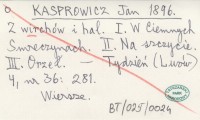 KASPROWICZ Jan 1896.
Z wirchów i hal. I. W Ciemnych
Smreczynach. II. Na szczycie.
III. Orzeł. — Tydzień (Lwów)
4, nr 36: 281.
Wiersze.
BT/025/0024